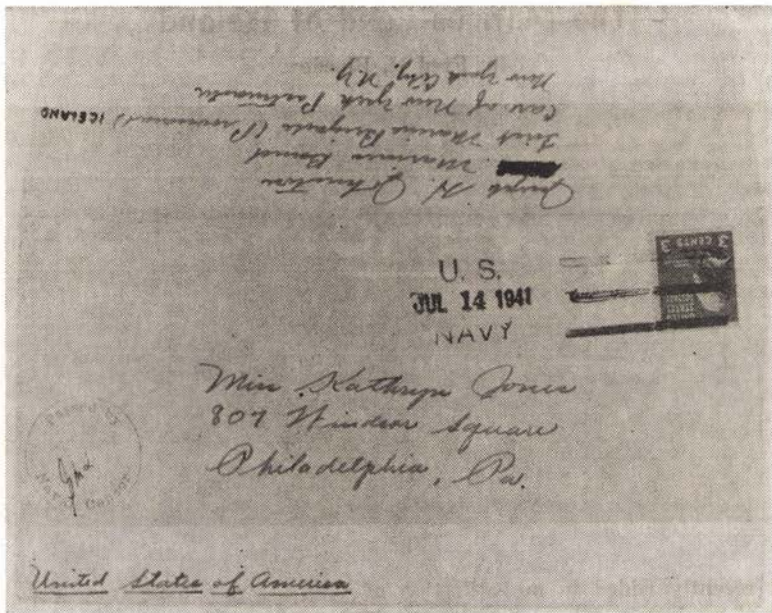 Joseph H. Johnston
Marines Band
First Marine Brigade (Provisional) ICELAND
Care of New York Postmaster
New York City, N.Y.
3 CENTS 3
UNITED
STATES
POSTAGE
U. S.
JUL 14 1941
NAVY
Miss Kathryn Jones
807 Windsor Square
Philadelphia, Pa.
Passed by
Naval Censor
United States of America